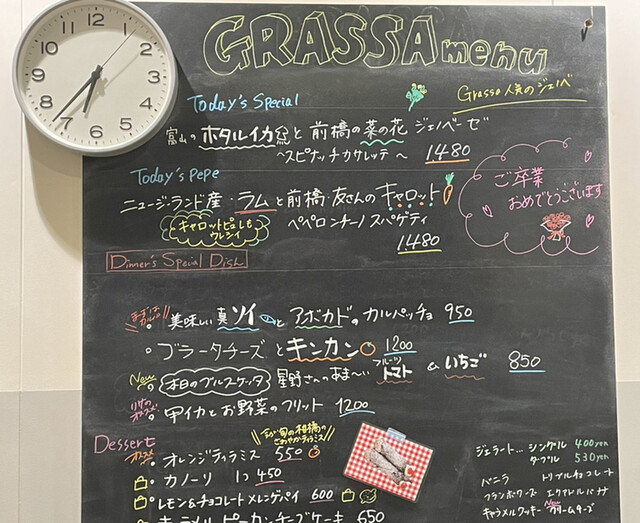 GRASSA menu
Today's Special
Grassa 人気のジェノベ
富山のホタルイカと前橋の菜の花 ジェノベーゼ
〜スピナッチカサレッテ〜 1480
Today's PePe
ニュージーランド産・ラムと前橋・友さんのキャロット
キャロットピュレも
ウレシイ
ペペロンチーノ スパゲティ
1480
ご卒業
おめでとうございます
Dinner's Special Dish
まずは
美味しい真ソイとアボカドのカルパッチョ 950
ブラータチーズとキンカン 1200
New
本日のブルスケッタ 星野さんのあま〜い フルーツトマト & いちご 850
オススメ
甲イカとお野菜のフリット 1200
Dessert
今が旬の柑橘の
さわやかティラミス
オススメ
オレンジティラミス 550
カノーリ 1つ 450
レモン&チョコレートメレンゲパイ 600
キャラメルピーカンチーズケーキ 650
ジェラート... シングル 400yen
ダブル 530yen
バニラ トリプルチョコレート
フランボワーズ エクアドルバナナ
New
キャラメルクッキー クリームチーズ
12
1
2
3
4
5
6
7
8
9
10
11